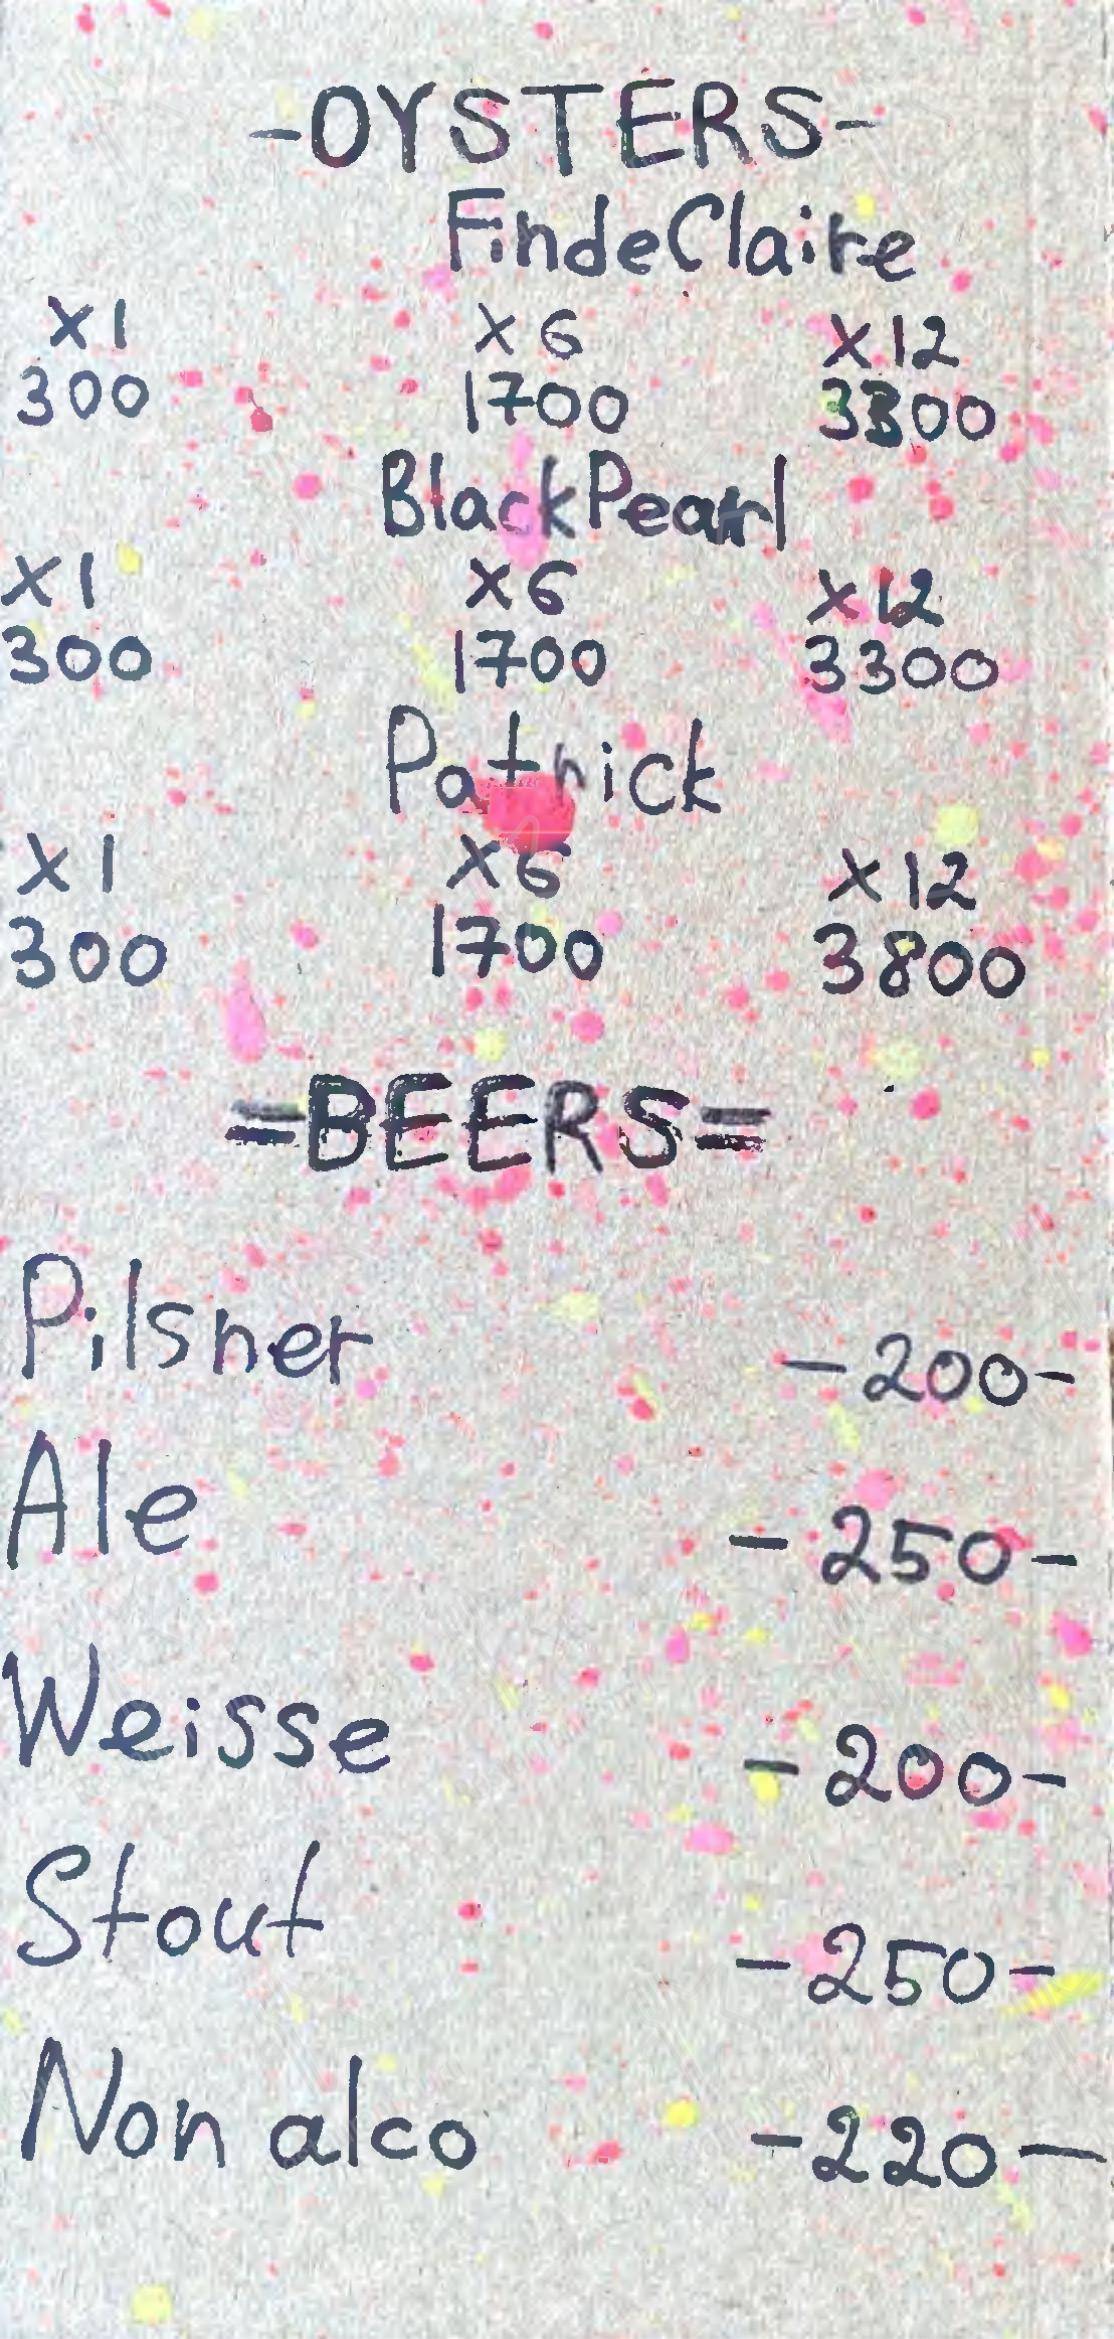 -OYSTERS-
FindeClaire
X1 X6 X12
300 1700 3300
BlackPearl
X1 X6 X12
300 1700 3300
Patrick
X1 X6 X12
300 1700 3800
=BEERS=
Pilsner -200-
Ale -250-
Weisse -200-
Stout -250-
Non alco -220-